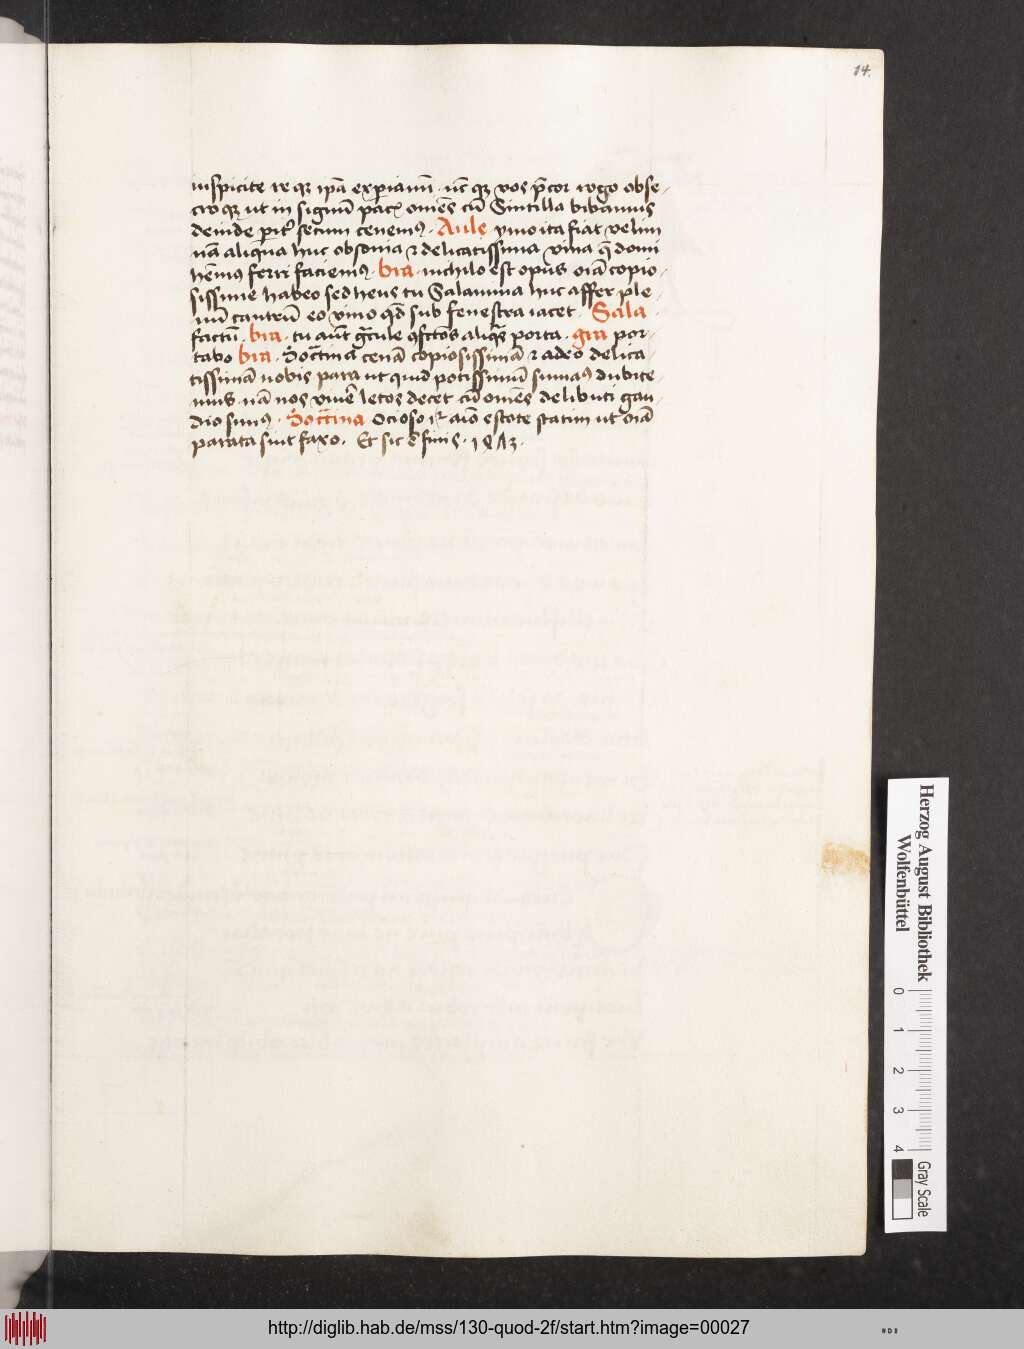 14.
inspicite re qz ipā experiamī · nc̄ qz vos p̄cor rogo obse-
cro qz ut in signū pacꝭ omēs cū Sintilla bibamus
deinde pit̓ secum cenemꝰ · Aule ymo ita fiat velim
nā aliqua huc obsonia ⁊ delicatissima vina q̄ domi
hēmꝰ ferri faciemꝰ · bra · nichilo est opus oīa copio-
sissime habeo sed heus tu Salamina huc affer ple-
nū cantrū eo vino qd̄ sub fenestra iacet · Sala ·
factū · bra · tu aūt gͣcule ꝯfctōs aliqͣs porta · gra por-
tabo bra · Doc̄tina cenā copiosissimā ⁊ adeo delica-
tissimā nobis para ut quid potissimū sumaꝰ dubite-
mus · nā nos viuē letos decet cū omēs delibuti gau-
dio simꝰ · Doc̄tina Ocioso iꝛ aīo estote statim ut oīā
parata sint faxo · Et sic ē finis · 1473 ·
Herzog August Bibliothek
Wolfenbüttel
0 1 2 3 4
Gray Scale
http://diglib.hab.de/mss/130-quod-2f/start.htm?image=00027